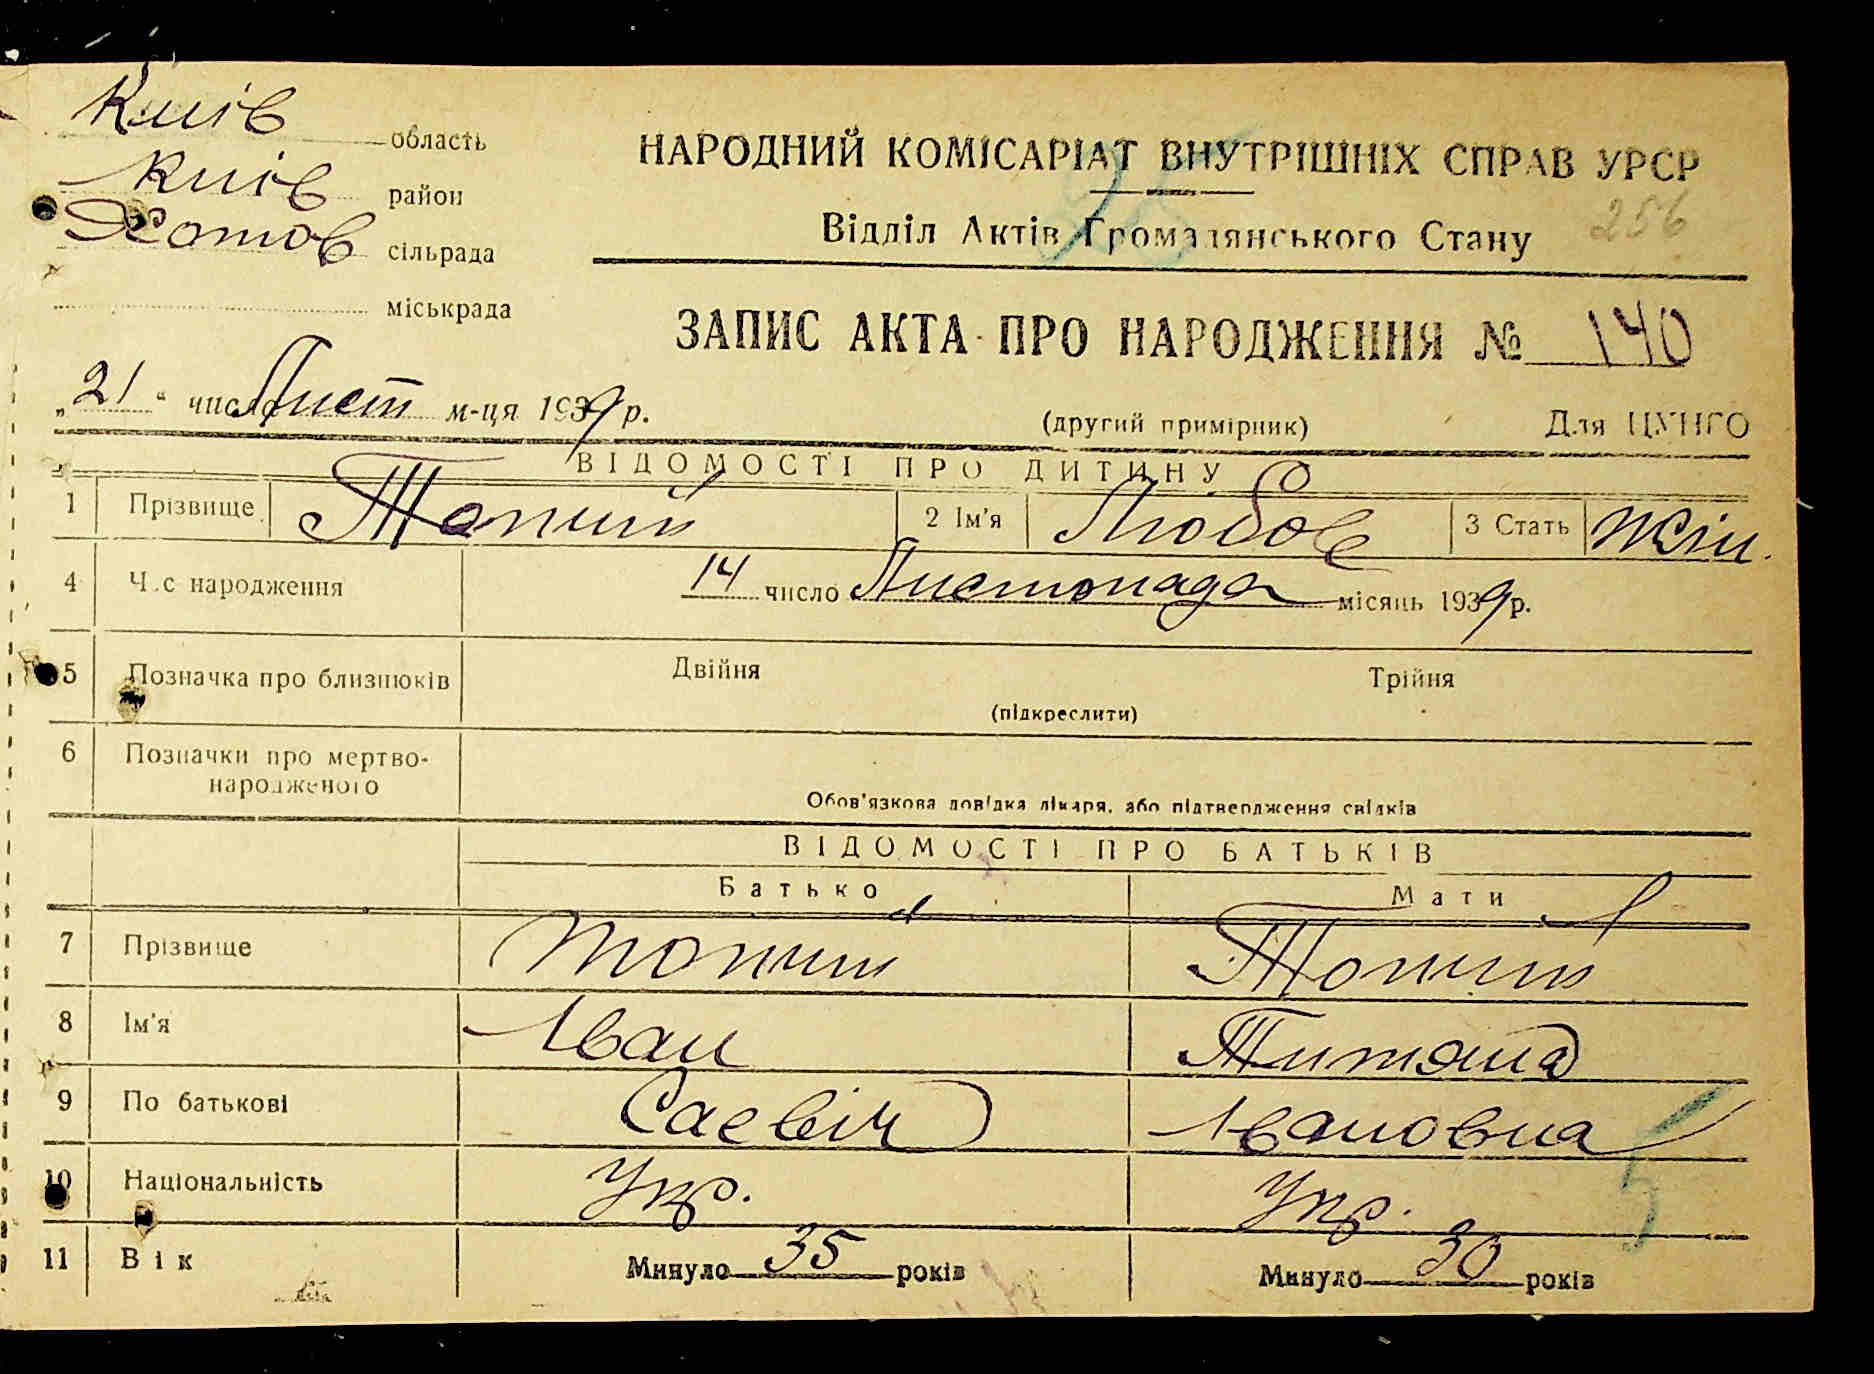 Київ область
Київ район
Хотов сільрада
міськрада
НАРОДНИЙ КОМІСАРІАТ ВНУТРІШНІХ СПРАВ УРСР
Відділ Актів Громадянського Стану
256
ЗАПИС АКТА ПРО НАРОДЖЕННЯ № 140
„21“ числа Лист м-ця 1939 р.
(другий примірник) Для ЦУНГО
ВІДОМОСТІ ПРО ДИТИНУ
1 Прізвище Топчий 2 Ім'я Любов 3 Стать Жін.
4 Час народження 14 число Листопада місяць 1939 р.
5 Позначка про близнюків Двійня Трійня
(підкреслити)
6 Позначки про мертво-
народженого
Обов'язкова довідка лікаря, або підтвердження свідків
ВІДОМОСТІ ПРО БАТЬКІВ
Батько Мати
7 Прізвище Топчий Топчий
8 Ім'я Іван Титяна
9 По батькові Саевіч Івановна
10 Національність Укр. Укр.
11 Вік Минуло 35 років Минуло 30 років